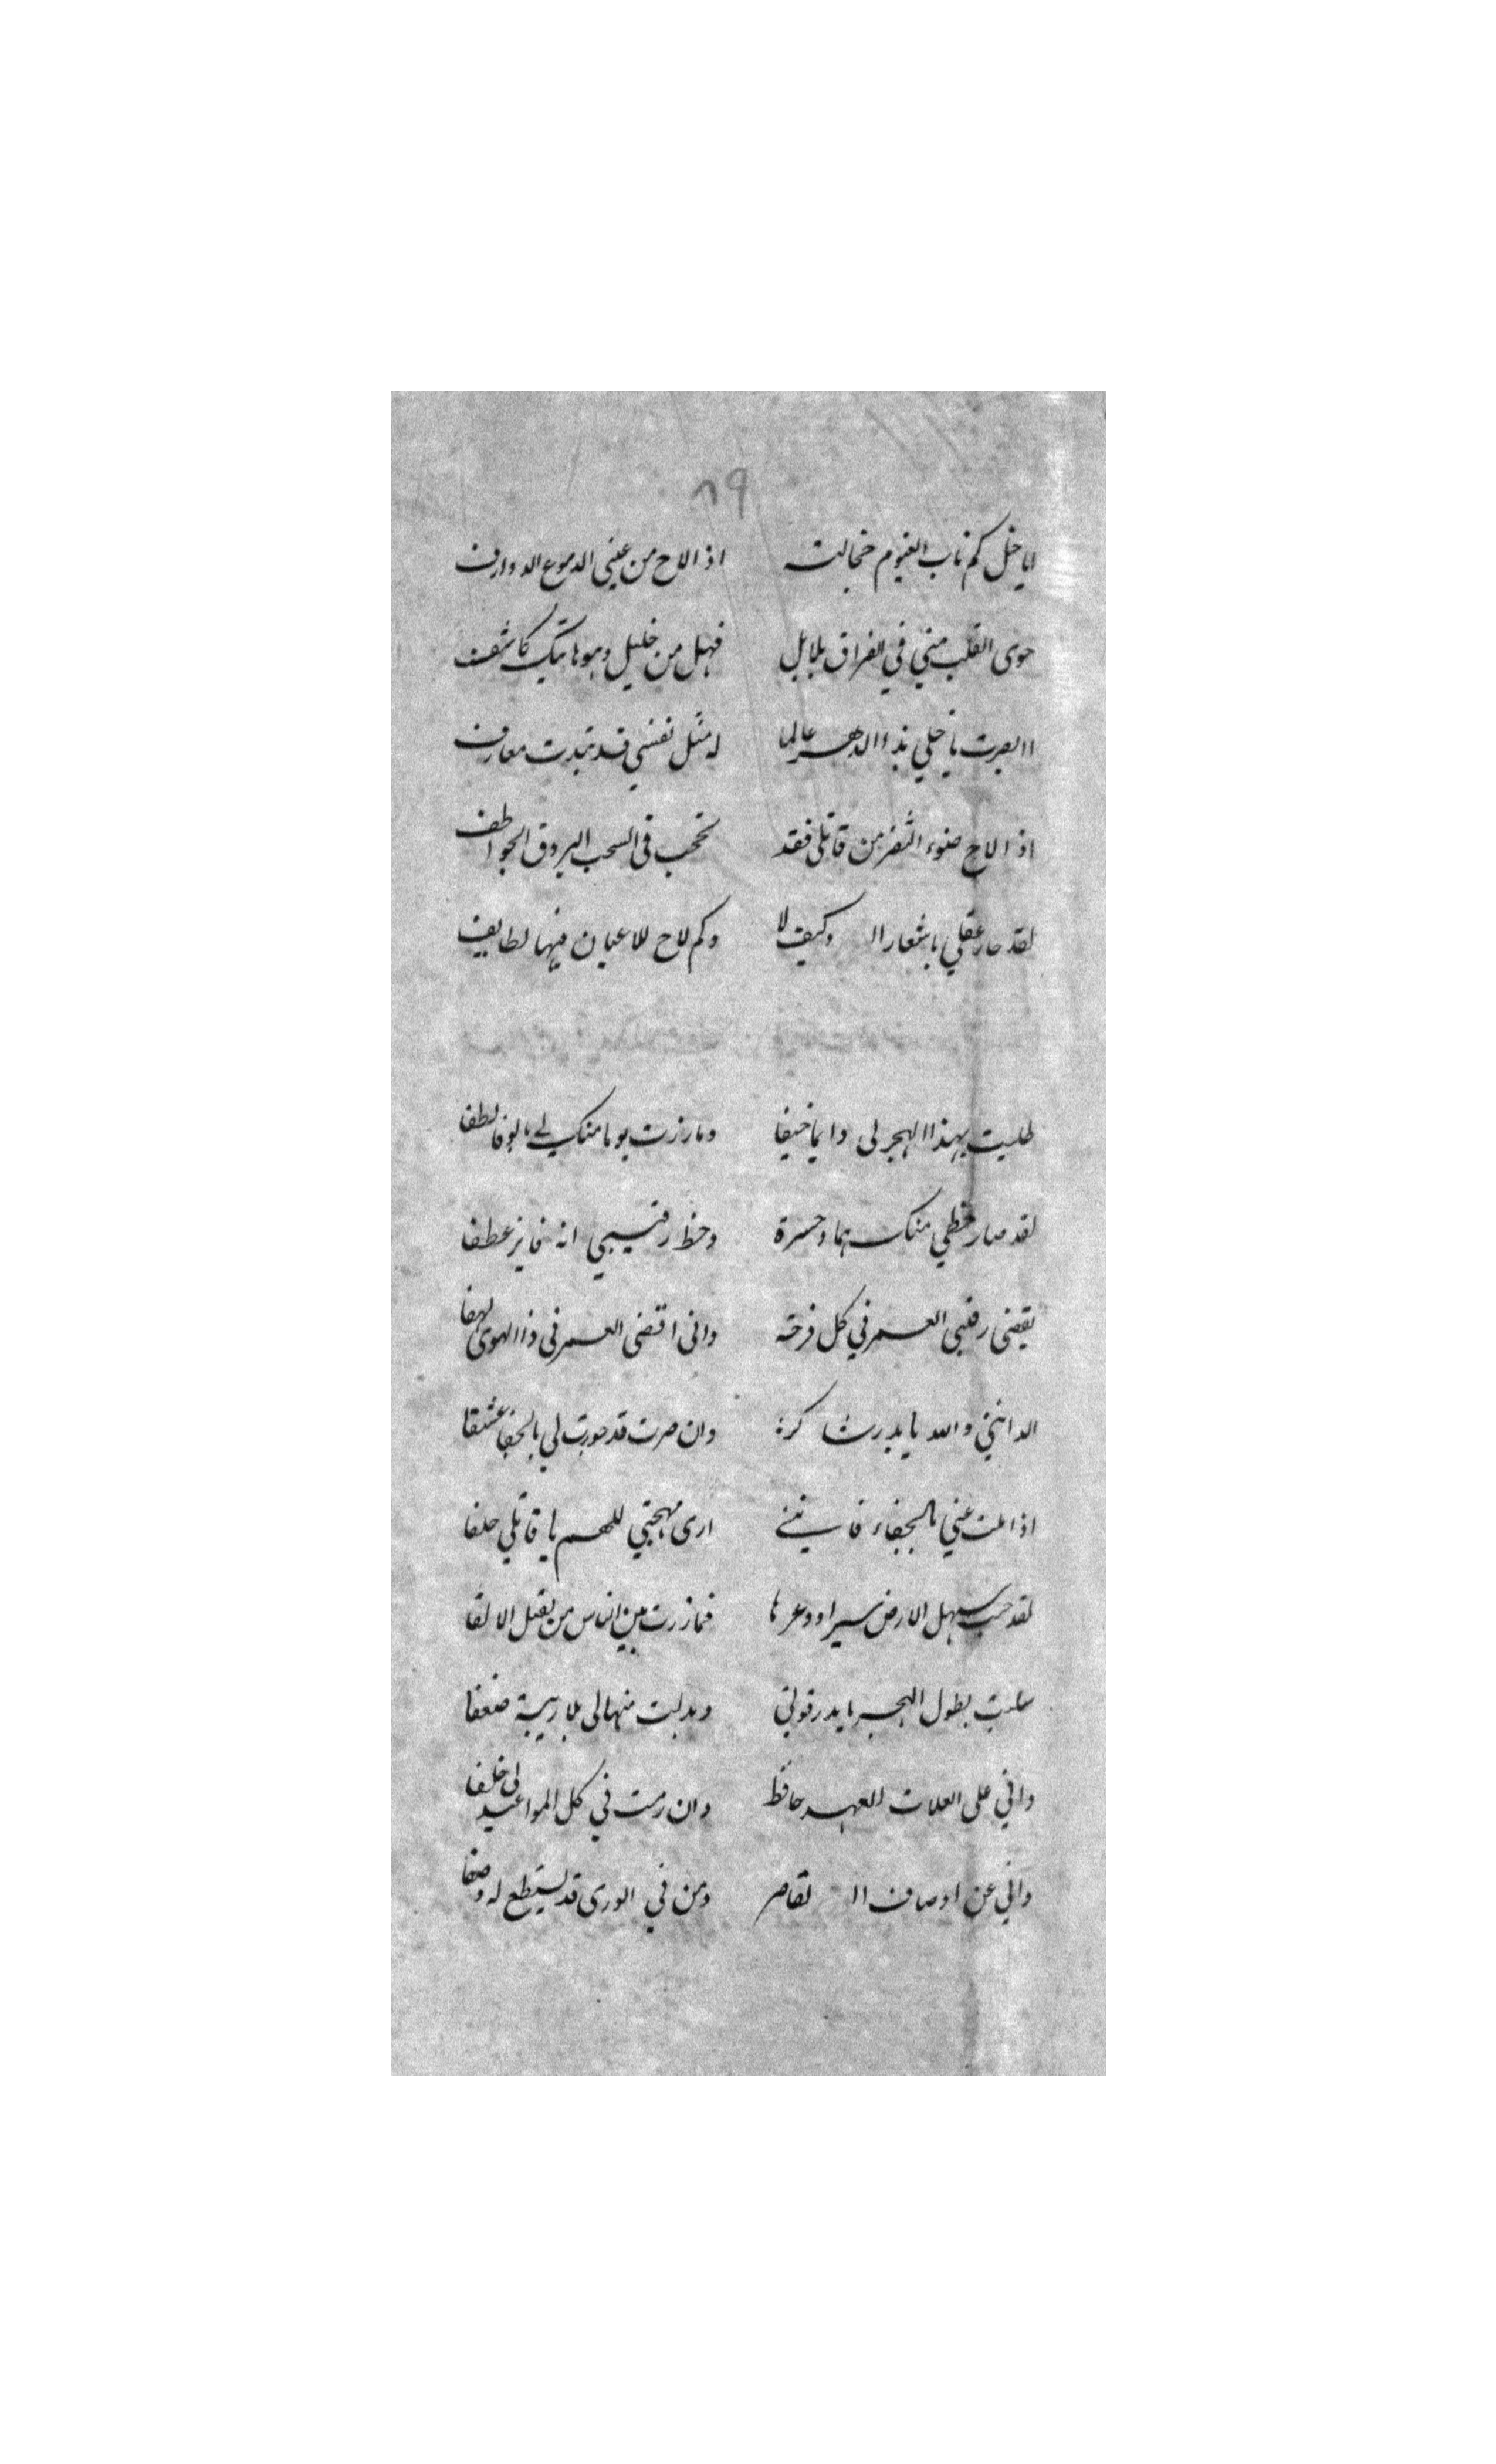 ٨٩
ايا خل كم ناب الغيوم خجالت اذا لاح من عيني الدموع الدوارف
حوى القلب مني في الفراق بلابل فهل من خليل وهو هاتيك كاشف
اابصرت يا خلي بذا الدهر عالما له مثل نفسي قد تبدت معارف
اذا لاح ضوء الثغر من قاتلي فقد تحجب في السحب البروق الخواطف
لقد حار عقلي باشعار ال وكيف لا وكم لاح للاعيان فيها لطايف
طلبت بهذا الهجر لي دايما حيفا وما زرت يوما منك لي بالوفا لطفا
لقد صار حظي منك هما وحسرة وحظ رقيبي انه فايز عطفا
يقضي رقيبي العمر في كل فرحة واني اقضي العمر في ذا الهوى لهفا
الا انني والله يا بدر شاكر وان صرت قد جورت لي بالجفا عشقا
اذا ملت عني بالجفاء فانني ارى مهجتي للهم يا قاتلي حلفا
لقد جبت سهل الارض سيرا ووعرها فما زرت بين الناس من يقبل الالفا
سلبت بطول الهجر يا بدر قوتي وبدلت منها لي بلا ريبة ضعفا
واني على العلات للعهد حافظ وان رمت في كل المواعيد لي خلفا
واني عن اوصاف ال لقاصر ومن في الورى قد يستطع له وصفا